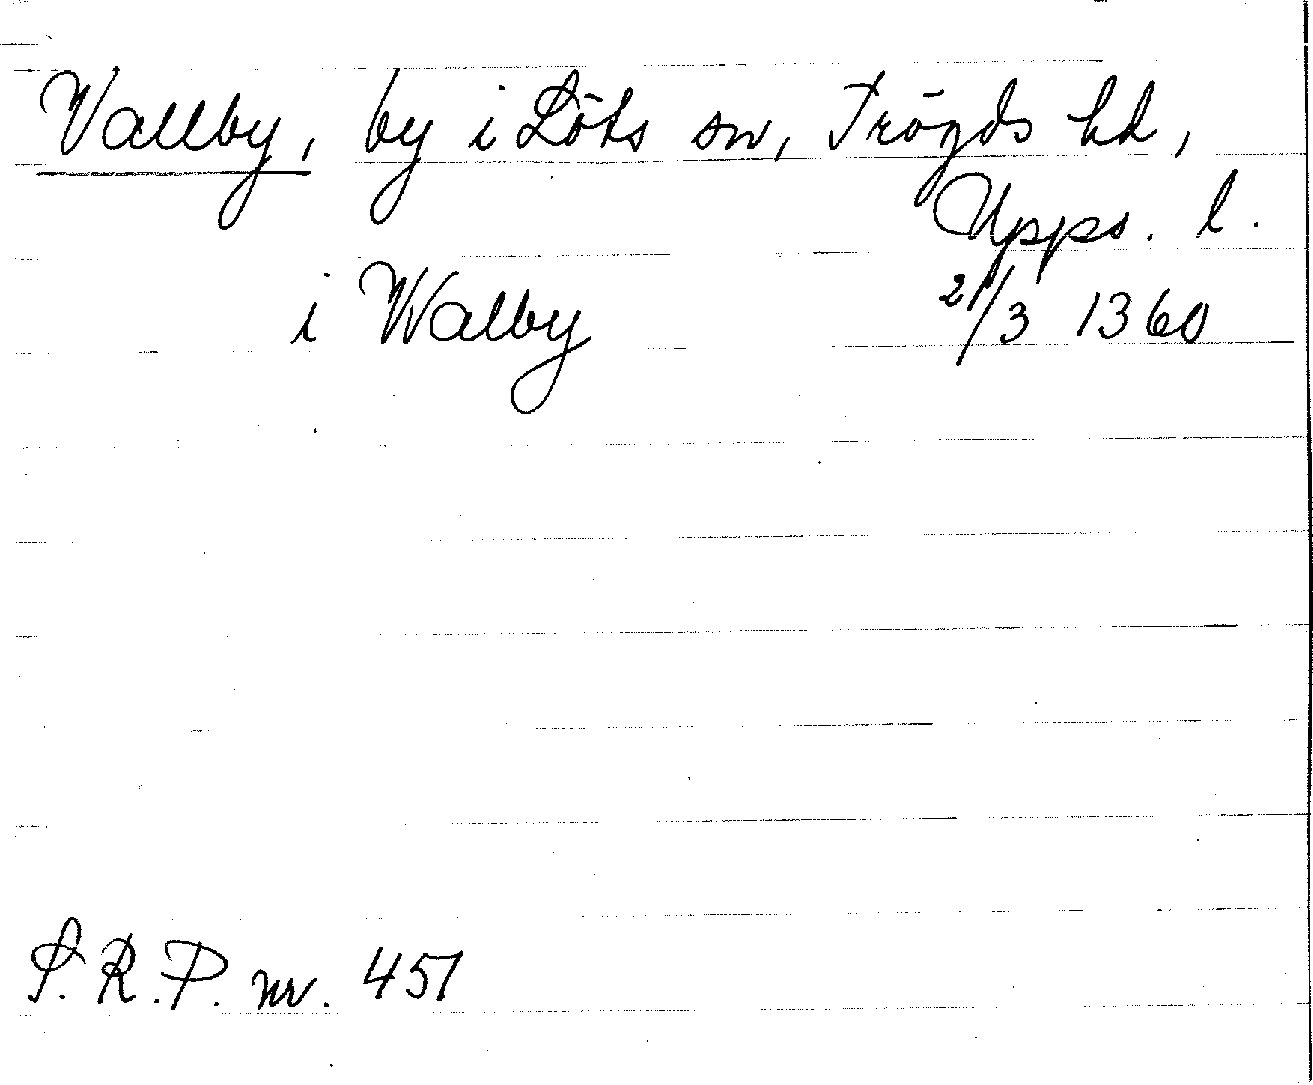 Vallby, by i Löts sn, Trögds hd,
Upps. l.
i Walby 21/3 1360
S.R.P. nr. 451